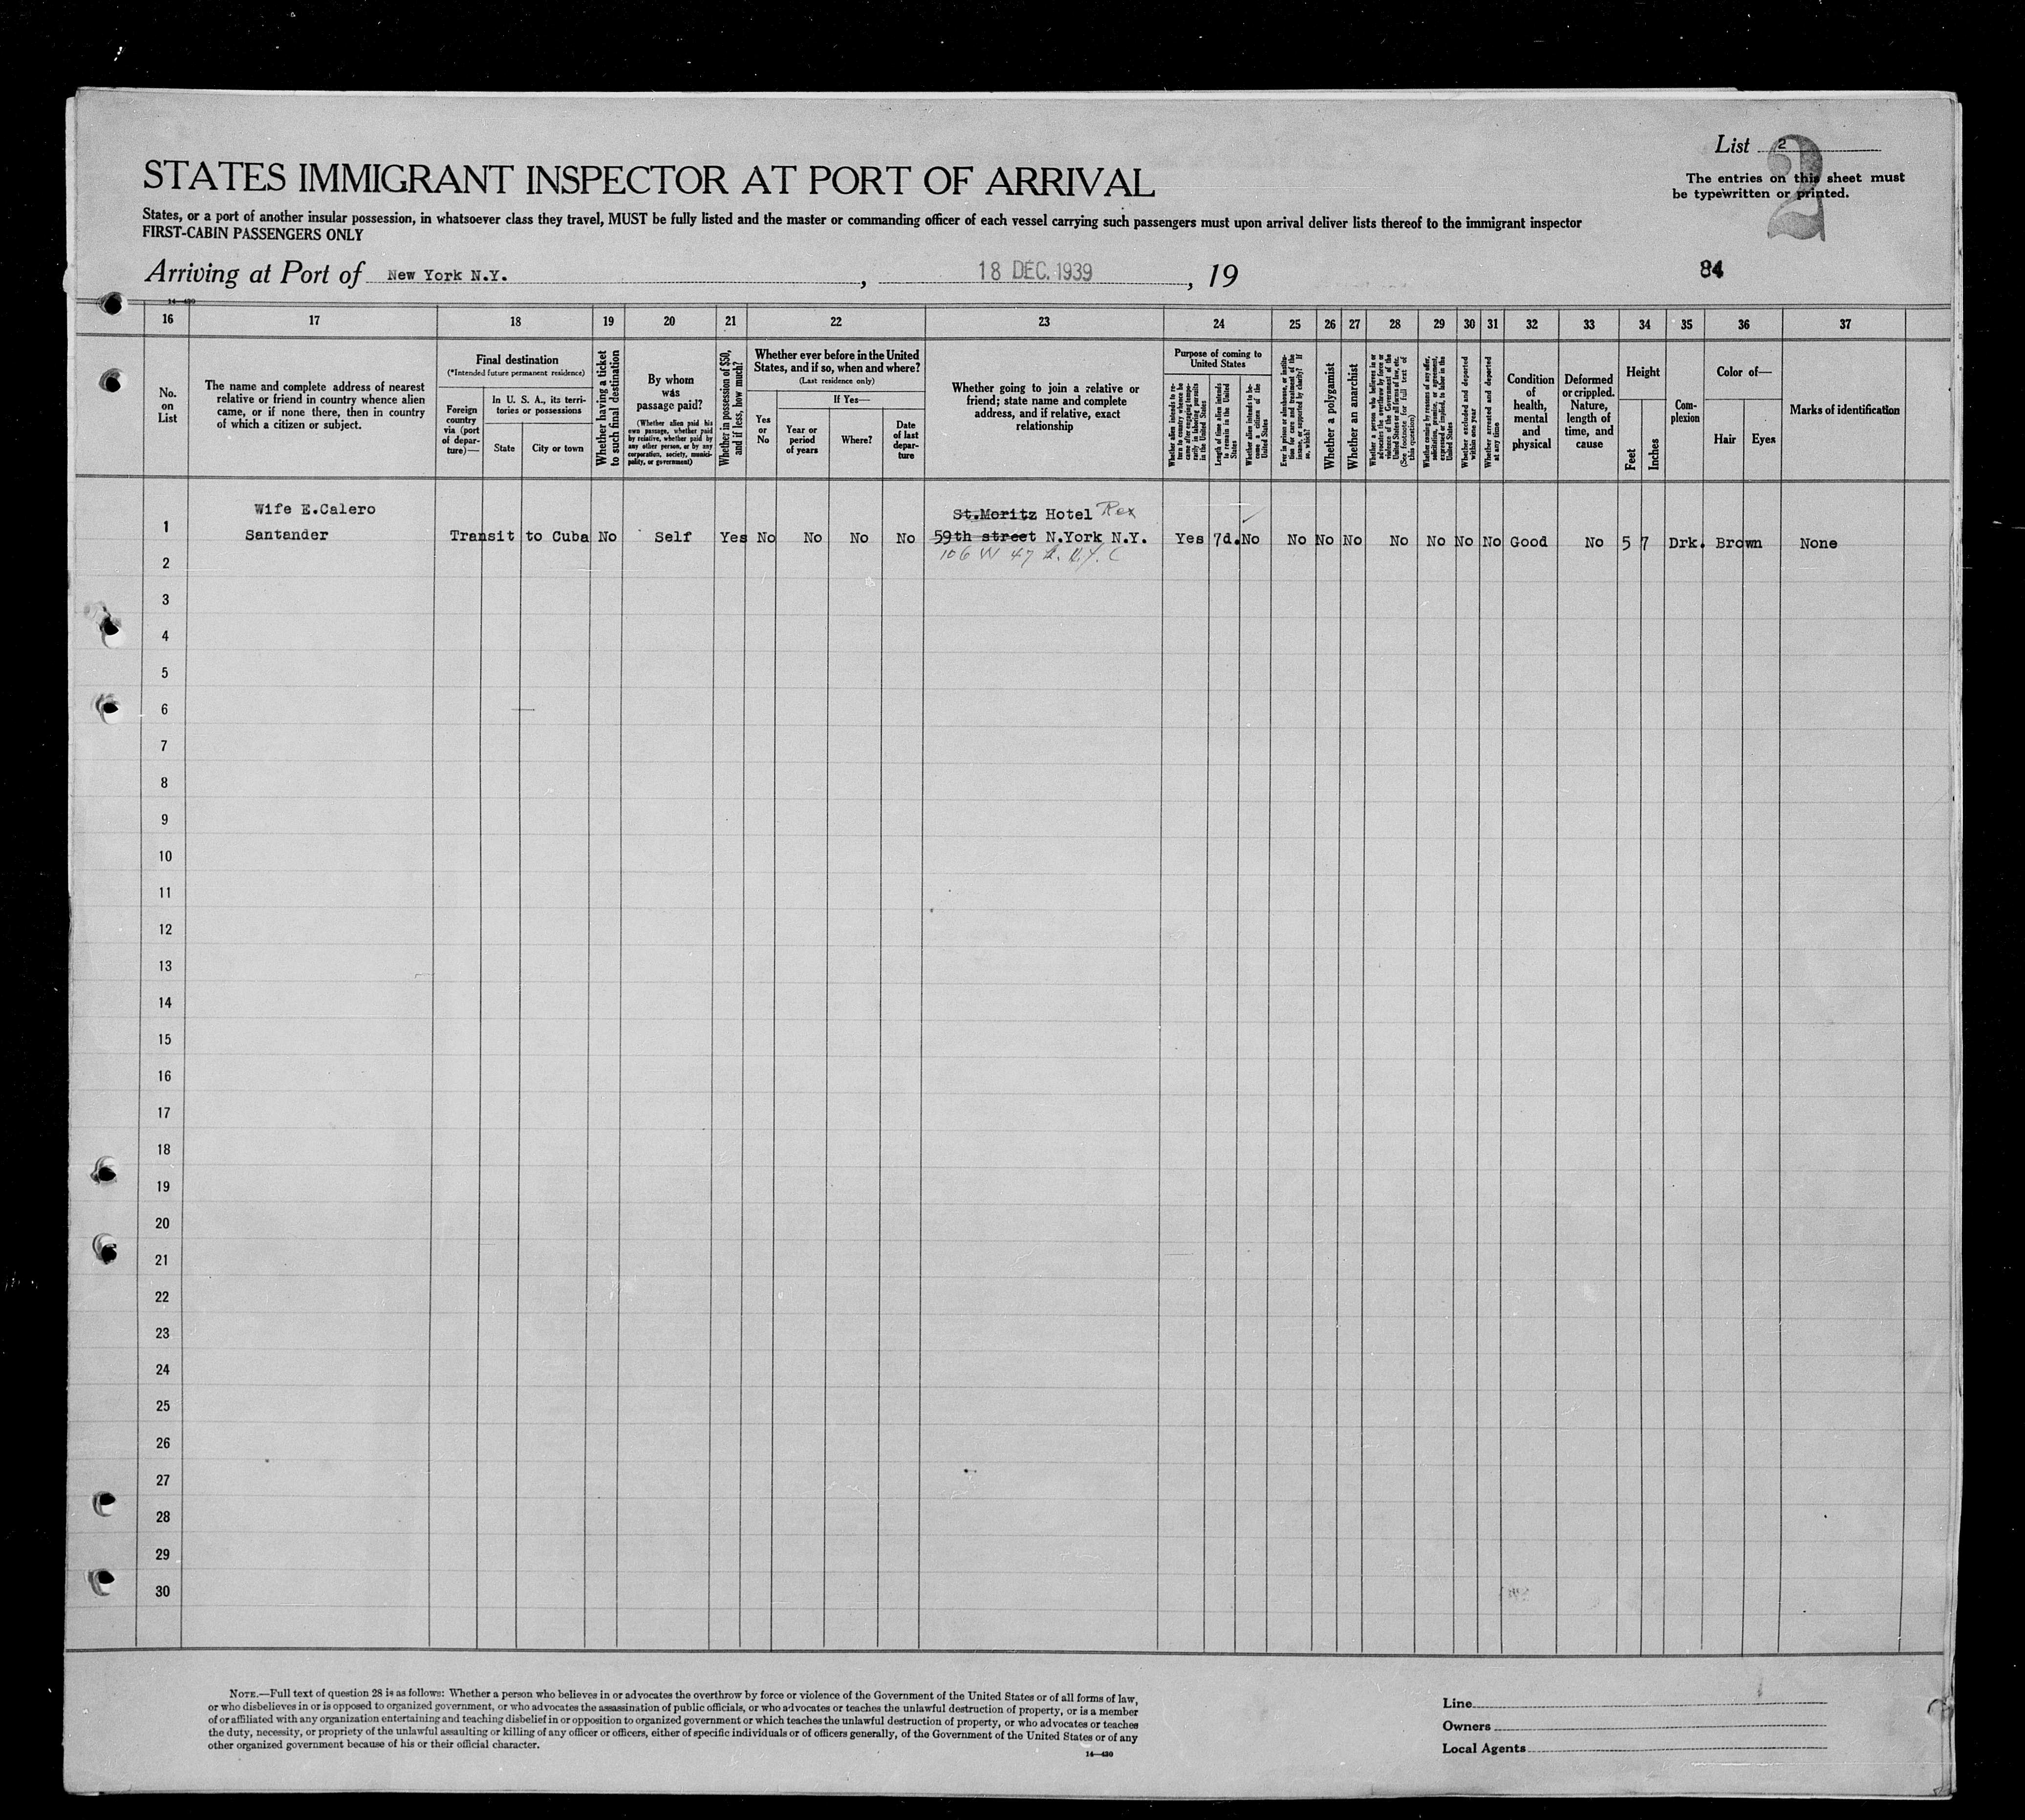 List 2
2
The entries on this sheet must
be typewritten or printed.
STATES IMMIGRANT INSPECTOR AT PORT OF ARRIVAL
States, or a port of another insular possession, in whatsoever class they travel, MUST be fully listed and the master or commanding officer of each vessel carrying such passengers must upon arrival deliver lists thereof to the immigrant inspector
FIRST-CABIN PASSENGERS ONLY
Arriving at Port of New York N.Y., 18 DEC. 1939, 19
84
14—430
16 17 18 19 20 21 22 23 24 25 26 27 28 29 30 31 32 33 34 35 36 37
No.
on
List
The name and complete address of nearest
relative or friend in country whence alien
came, or if none there, then in country
of which a citizen or subject.
Final destination
(*Intended future permanent residence)
Foreign
country
via (port
of depar-
ture)—
In U. S. A., its terri-
tories or possessions
State
City or town
Whether having a ticket
to such final destination
By whom
was
passage paid?
(Whether alien paid his
own passage, whether paid
by relative, whether paid by
any other person, or by any
corporation, society, munici-
pality, or government)
Whether in possession of $50,
and if less, how much?
Whether ever before in the United
States, and if so, when and where?
(Last residence only)
Yes
or
No
If Yes—
Year or
period
of years
Where?
Date
of last
depar-
ture
Whether going to join a relative or
friend; state name and complete
address, and if relative, exact
relationship
Purpose of coming to
United States
Whether alien intends to re-
turn to country whence he
came after engaging tempo-
rarily in laboring pursuits
in the United States
Length of time alien intends
to remain in the United
States
Whether alien intends to be-
come a citizen of the
United States
Ever in prison or almshouse, or institu-
tion for care and treatment of the
insane, or supported by charity? If
so, which?
Whether a polygamist
Whether an anarchist
Whether a person who believes in or
advocates the overthrow by force or
violence of the Government of the
United States or all forms of law, etc.
(See footnote for full text of
this question)
Whether coming by reasons of any offer,
solicitation, promise, or agreement,
expressed or implied, to labor in the
United States
Whether excluded and deported
within one year
Whether arrested and deported
at any time
Condition
of
health,
mental
and
physical
Deformed
or crippled.
Nature,
length of
time, and
cause
Height
Feet
Inches
Com-
plexion
Color of—
Hair
Eyes
Marks of identification
Wife E.Calero
St.Moritz Hotel Rex
1 Santander Transit to Cuba No Self Yes No No No No 59th street N.York N.Y. Yes 7d. No No No No No No No No Good No 5 7 Drk. Brown None
106 W 47 N.Y.C
2
3
4
5
6
7
8
9
10
11
12
13
14
15
16
17
18
19
20
21
22
23
24
25
26
27
28
29
30
NOTE.—Full text of question 28 is as follows: Whether a person who believes in or advocates the overthrow by force or violence of the Government of the United States or of all forms of law,
or who disbelieves in or is opposed to organized government, or who advocates the assassination of public officials, or who advocates or teaches the unlawful destruction of property, or is a member
of or affiliated with any organization entertaining and teaching disbelief in or opposition to organized government or which teaches the unlawful destruction of property, or who advocates or teaches
the duty, necessity, or propriety of the unlawful assaulting or killing of any officer or officers, either of specific individuals or of officers generally, of the Government of the United States or of any
other organized government because of his or their official character.
14—430
Line
Owners
Local Agents